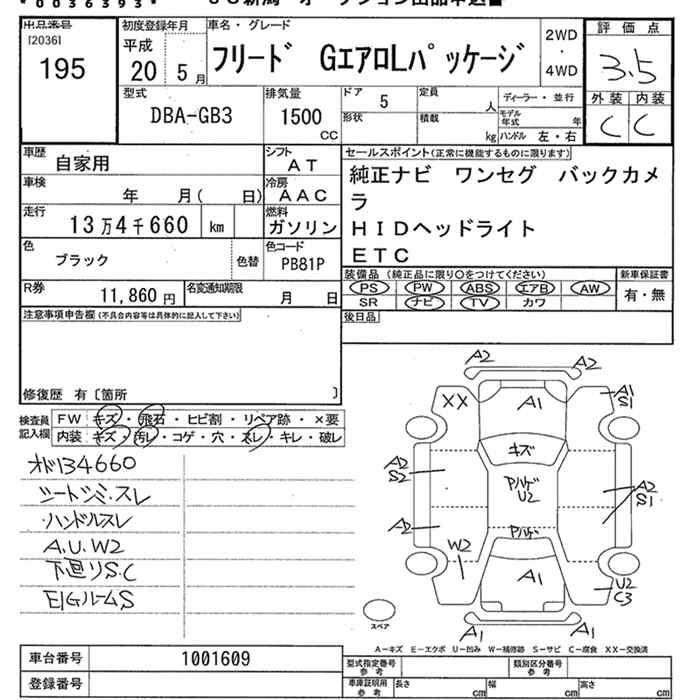 *0036393*
出品番号
[2036]
195
初度登録年月
平成
20 5月
車名・グレード
フリード GエアロLパッケージ
2WD
・
4WD
評価点
3.5
外装 内装
C C
型式
DBA-GB3
排気量
1500
CC
ドア 5
形状
定員 人
積載 kg
ディーラー・並行
モデル年式 年
ハンドル 左・右
車歴
自家用
シフト
AT
車検
年 月( 日)
冷房
AAC
走行
13万4千660 km
燃料
ガソリン
色
ブラック
色替
色コード
PB81P
R券
11,860円
名変通知期限
月 日
セールスポイント(正常に機能するものに限ります)
純正ナビ ワンセグ バックカメ
ラ
HIDヘッドライト
ETC
装備品(純正品に限り○をつけてください)
新車保証書
PS PW ABS エアB AW
SR ナビ TV カワ
有・無
後日品
注意事項申告欄(不具合内容等は具体的に記入して下さい)
修復歴 有〔箇所 〕
検査員
記入欄
FW キズ・飛石・ヒビ割・リペア跡・×要
内装 キズ・汚レ・コゲ・穴・スレ・キレ・破レ
オド134660
シートシミ・スレ
ハンドルスレ
A.U.W2
下廻りS.C
E/GルームS
A2 A2
XX A1 A1
S1
キズ
A2
S2
アハゲ
U2
A2
S1
A2
アハゲ
W2
A1
U2
C3
A1 A1
スペア
A−キズ E−エクボ U−凹み W−補修跡 S−サビ C−腐食 XX−交換済
車台番号 1001609
登録番号
型式指定番号
参考
類別区分番号
参考
車庫証明用
参考
長さ cm 幅 cm 高さ cm